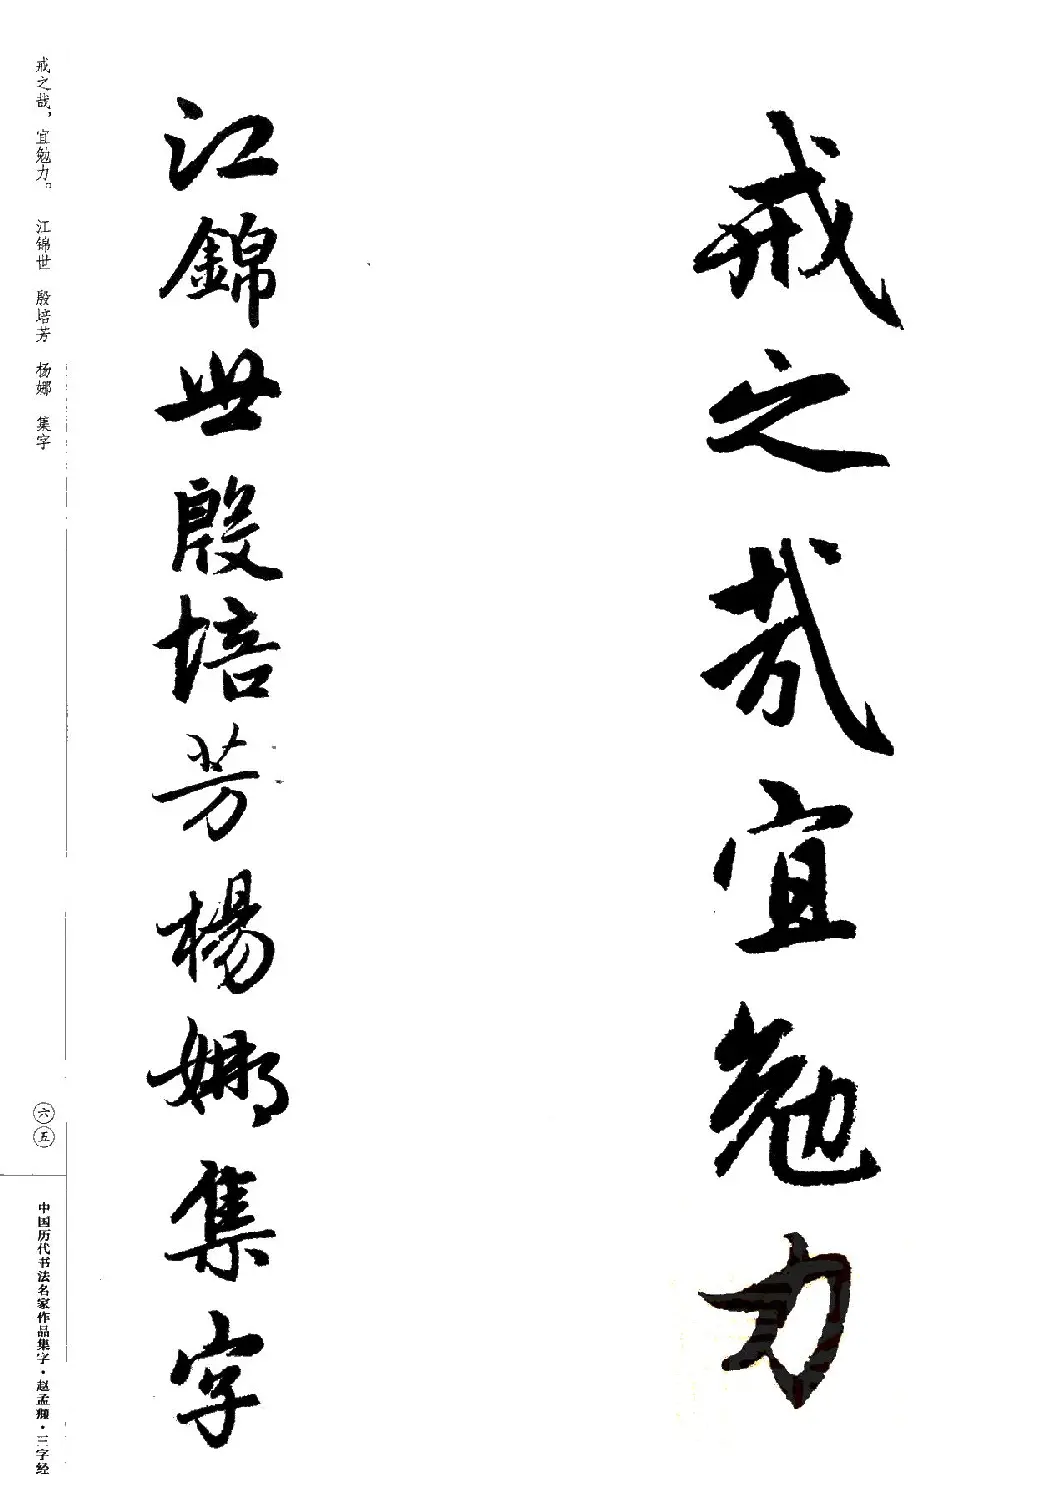 戒之哉宜勉力
江錦世殷培芳楊娜集字
戒之哉，宜勉力。 江锦世 殷培芳 杨娜 集字
六五
中国历代书法名家作品集字·赵孟頫·三字经